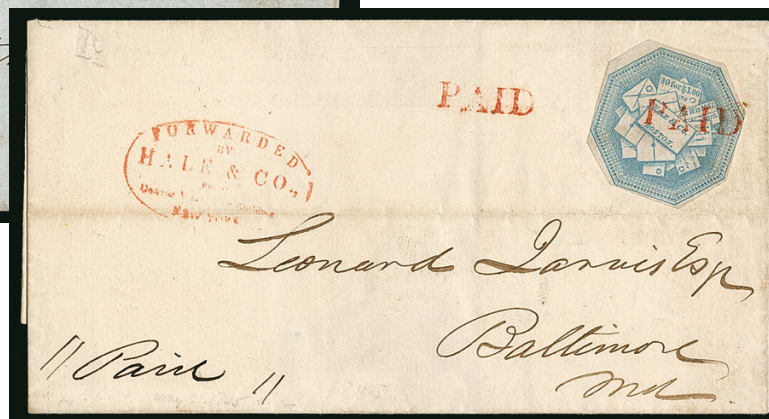 PAID
20 for $1.00
HALE & Co.
BOSTON.
PAID
FORWARDED
BY
HALE & CO.,
FROM
NEW YORK
Leonard Jarvis Esqr
Baltimore
Md.
" Paid "